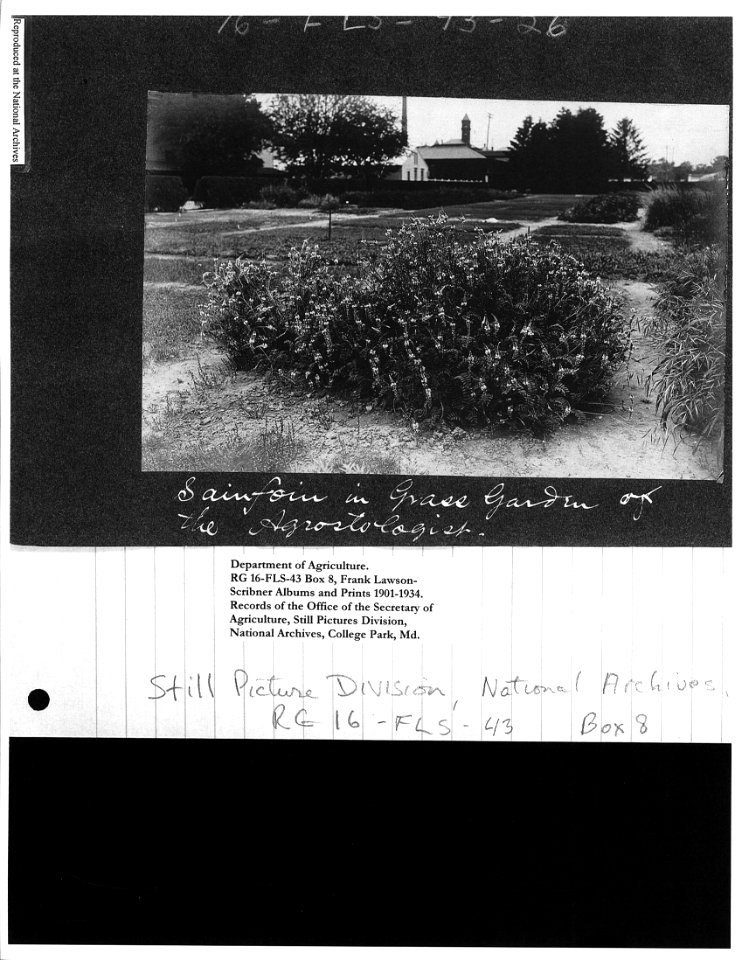 16-FLS-43-26
Reproduced at the National Archives
Sainfoin in Grass Garden of
the Agrostologist.
Department of Agriculture.
RG 16-FLS-43 Box 8, Frank Lawson-
Scribner Albums and Prints 1901-1934.
Records of the Office of the Secretary of
Agriculture, Still Pictures Division,
National Archives, College Park, Md.
Still Picture Division, National Archives,
RG 16-FLS-43 Box 8